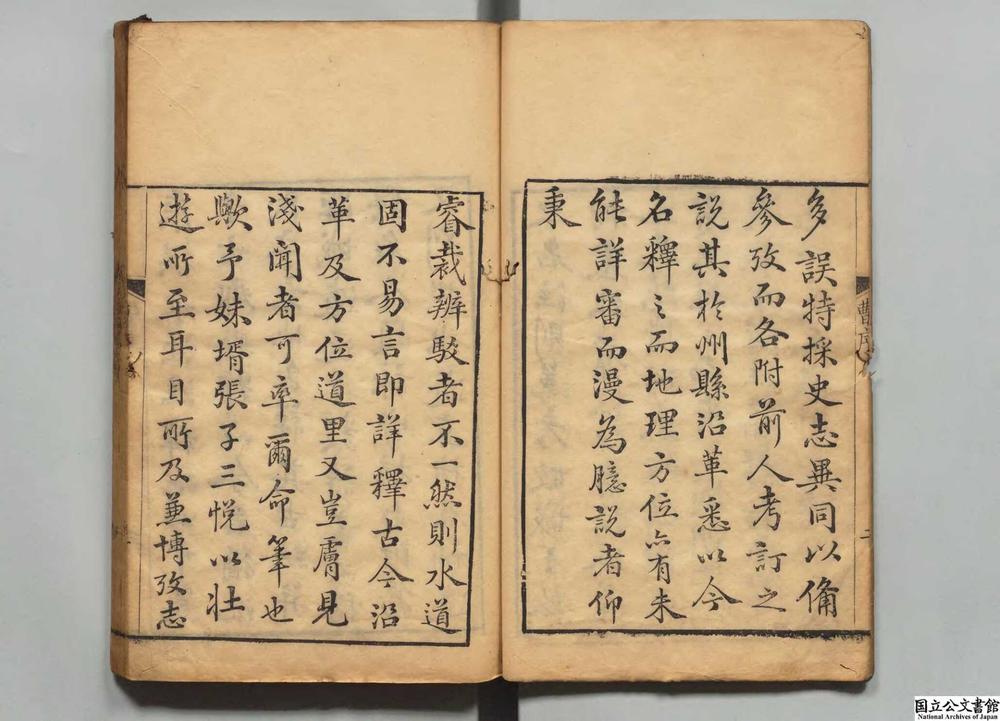 多誤特採史志異同以備
參攷而各附前人考訂之
說其於州縣沿革悉以今
名釋之而地理方位亦有未
能詳審而漫為臆說者仰
秉
曹序
二
睿裁辨駁者不一然則水道
固不易言即詳釋古今沿
革及方位道里又豈膚見
淺聞者可率爾命筆也
歟予妹壻張子三悅以壯
遊所至耳目所及兼博攷志
国立公文書館
National Archives of Japan